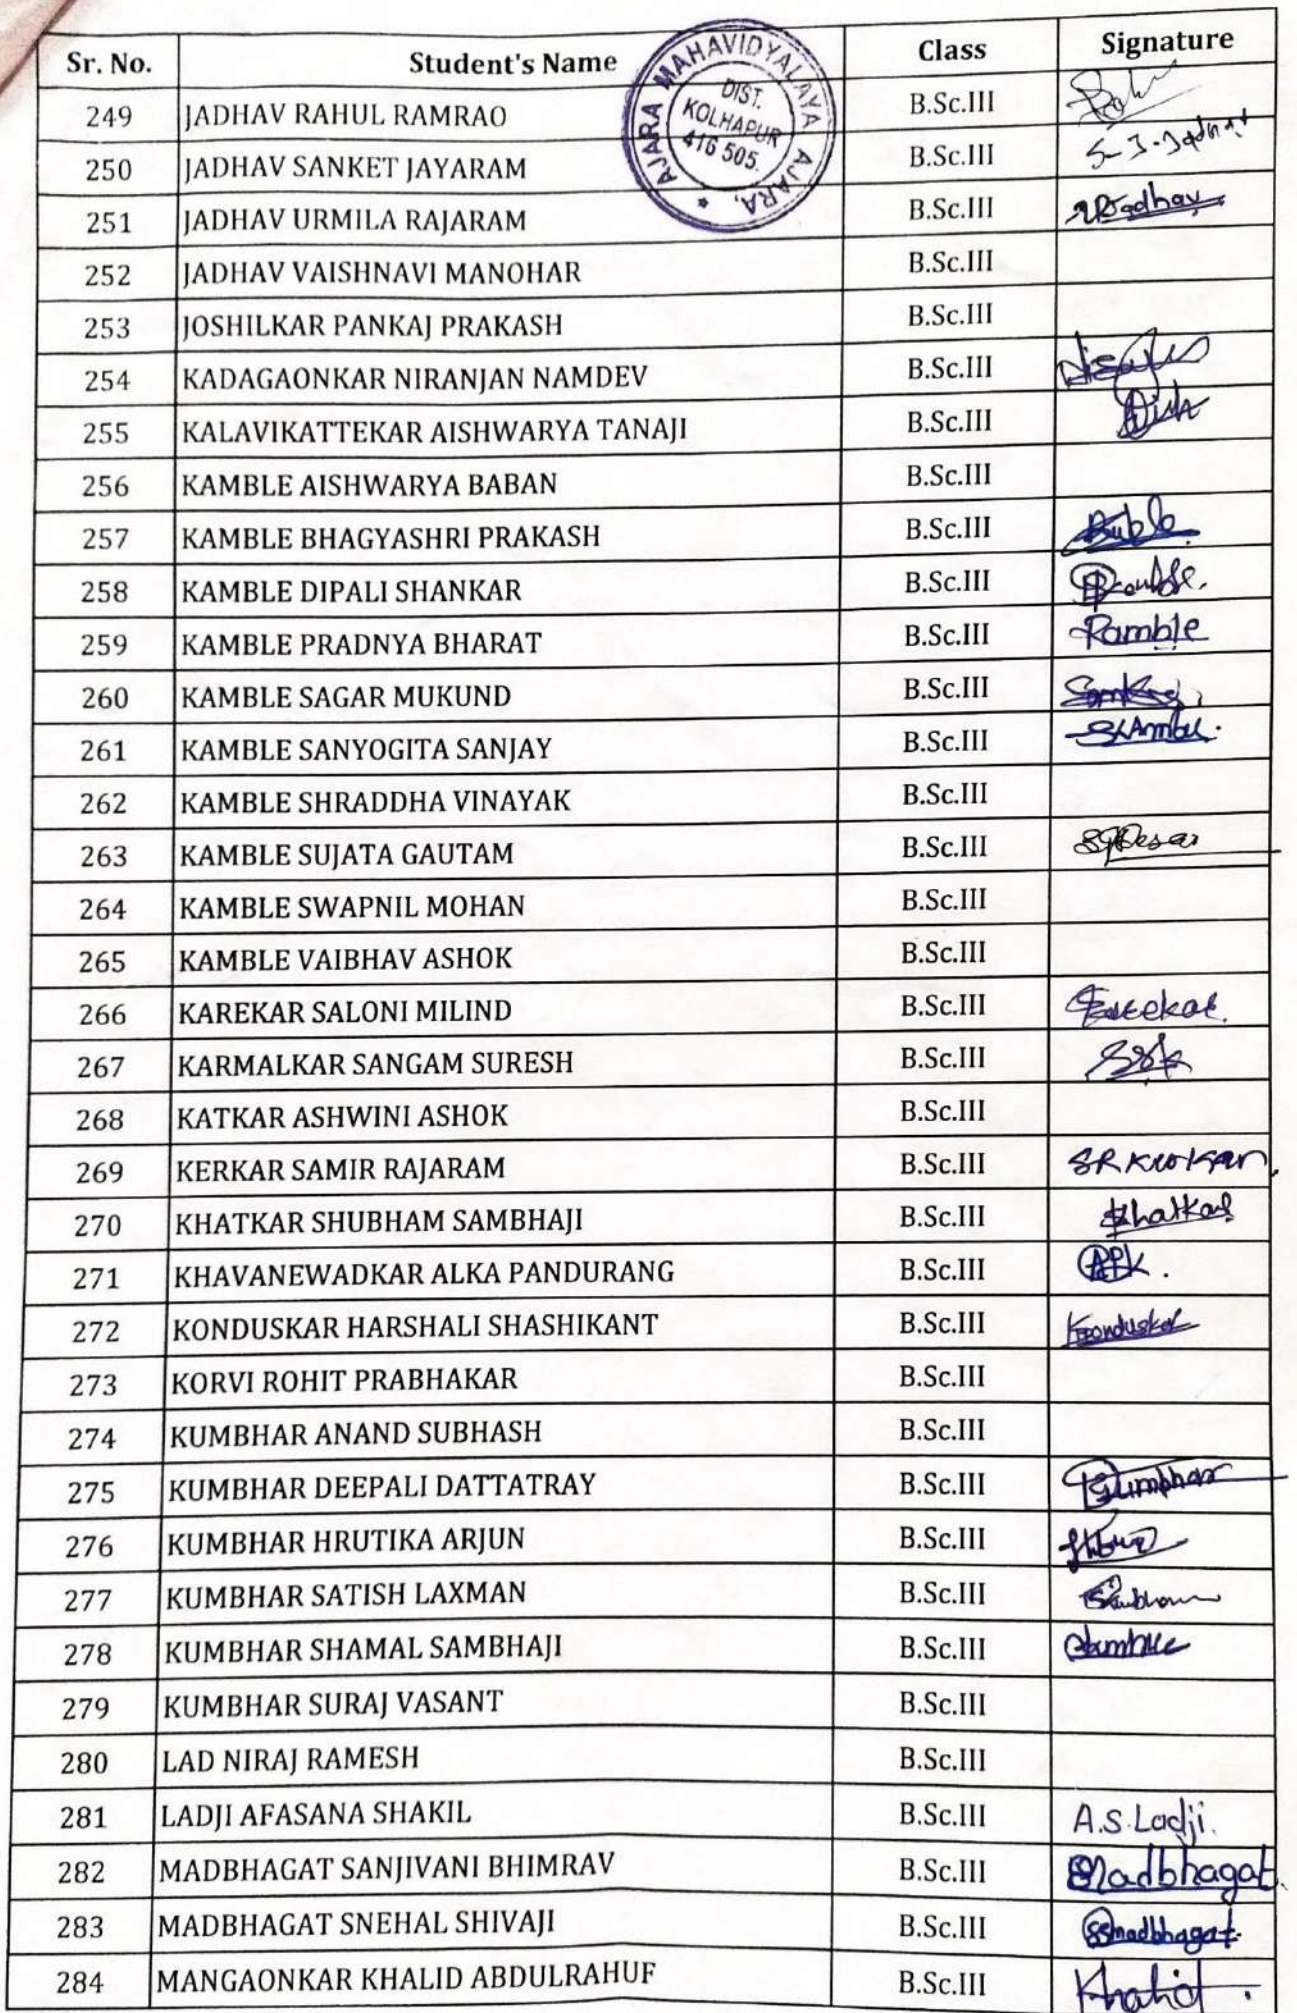 Sr. No. Student's Name Class Signature
AJARA MAHAVIDYALAYA AJARA,
DIST.
KOLHAPUR
416 505.
249 JADHAV RAHUL RAMRAO B.Sc.III
250 JADHAV SANKET JAYARAM B.Sc.III S-J-Jadhav
251 JADHAV URMILA RAJARAM B.Sc.III
252 JADHAV VAISHNAVI MANOHAR B.Sc.III
253 JOSHILKAR PANKAJ PRAKASH B.Sc.III
254 KADAGAONKAR NIRANJAN NAMDEV B.Sc.III
255 KALAVIKATTEKAR AISHWARYA TANAJI B.Sc.III
256 KAMBLE AISHWARYA BABAN B.Sc.III
257 KAMBLE BHAGYASHRI PRAKASH B.Sc.III
258 KAMBLE DIPALI SHANKAR B.Sc.III
259 KAMBLE PRADNYA BHARAT B.Sc.III Pamble
260 KAMBLE SAGAR MUKUND B.Sc.III
261 KAMBLE SANYOGITA SANJAY B.Sc.III
262 KAMBLE SHRADDHA VINAYAK B.Sc.III
263 KAMBLE SUJATA GAUTAM B.Sc.III
264 KAMBLE SWAPNIL MOHAN B.Sc.III
265 KAMBLE VAIBHAV ASHOK B.Sc.III
266 KAREKAR SALONI MILIND B.Sc.III
267 KARMALKAR SANGAM SURESH B.Sc.III SSK
268 KATKAR ASHWINI ASHOK B.Sc.III
269 KERKAR SAMIR RAJARAM B.Sc.III
270 KHATKAR SHUBHAM SAMBHAJI B.Sc.III
271 KHAVANEWADKAR ALKA PANDURANG B.Sc.III APK.
272 KONDUSKAR HARSHALI SHASHIKANT B.Sc.III
273 KORVI ROHIT PRABHAKAR B.Sc.III
274 KUMBHAR ANAND SUBHASH B.Sc.III
275 KUMBHAR DEEPALI DATTATRAY B.Sc.III
276 KUMBHAR HRUTIKA ARJUN B.Sc.III
277 KUMBHAR SATISH LAXMAN B.Sc.III
278 KUMBHAR SHAMAL SAMBHAJI B.Sc.III
279 KUMBHAR SURAJ VASANT B.Sc.III
280 LAD NIRAJ RAMESH B.Sc.III
281 LADJI AFASANA SHAKIL B.Sc.III A.S.Ladji.
282 MADBHAGAT SANJIVANI BHIMRAV B.Sc.III SMadbhagat.
283 MADBHAGAT SNEHAL SHIVAJI B.Sc.III SSmadbhagat.
284 MANGAONKAR KHALID ABDULRAHUF B.Sc.III Khalid.